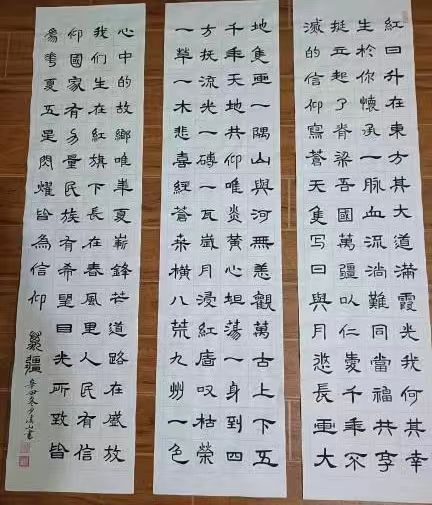 紅日升在東方其大道滿霞光我何其幸
生於你懷承一脈血流淌難同當福共享
挺立起了脊梁吾國萬疆以仁愛千年不
滅的信仰寫蒼天隻写日與月悠長畫大
地隻畫一隅山與河無恙觀萬古上下五
千年天地共仰唯炎黃心坦蕩一身到四
方抚流光一磚一瓦歲月浸紅墻叹枯榮
一草一木悲喜經蒼桑橫八荒九州一色
心中的故鄉唯華夏嶄鋒芒道路在盛放
我们生在紅旗下長在春風里人民有信
仰國家有力量民族有希望目光所致皆
為華夏五星閃耀皆為信仰
萬疆